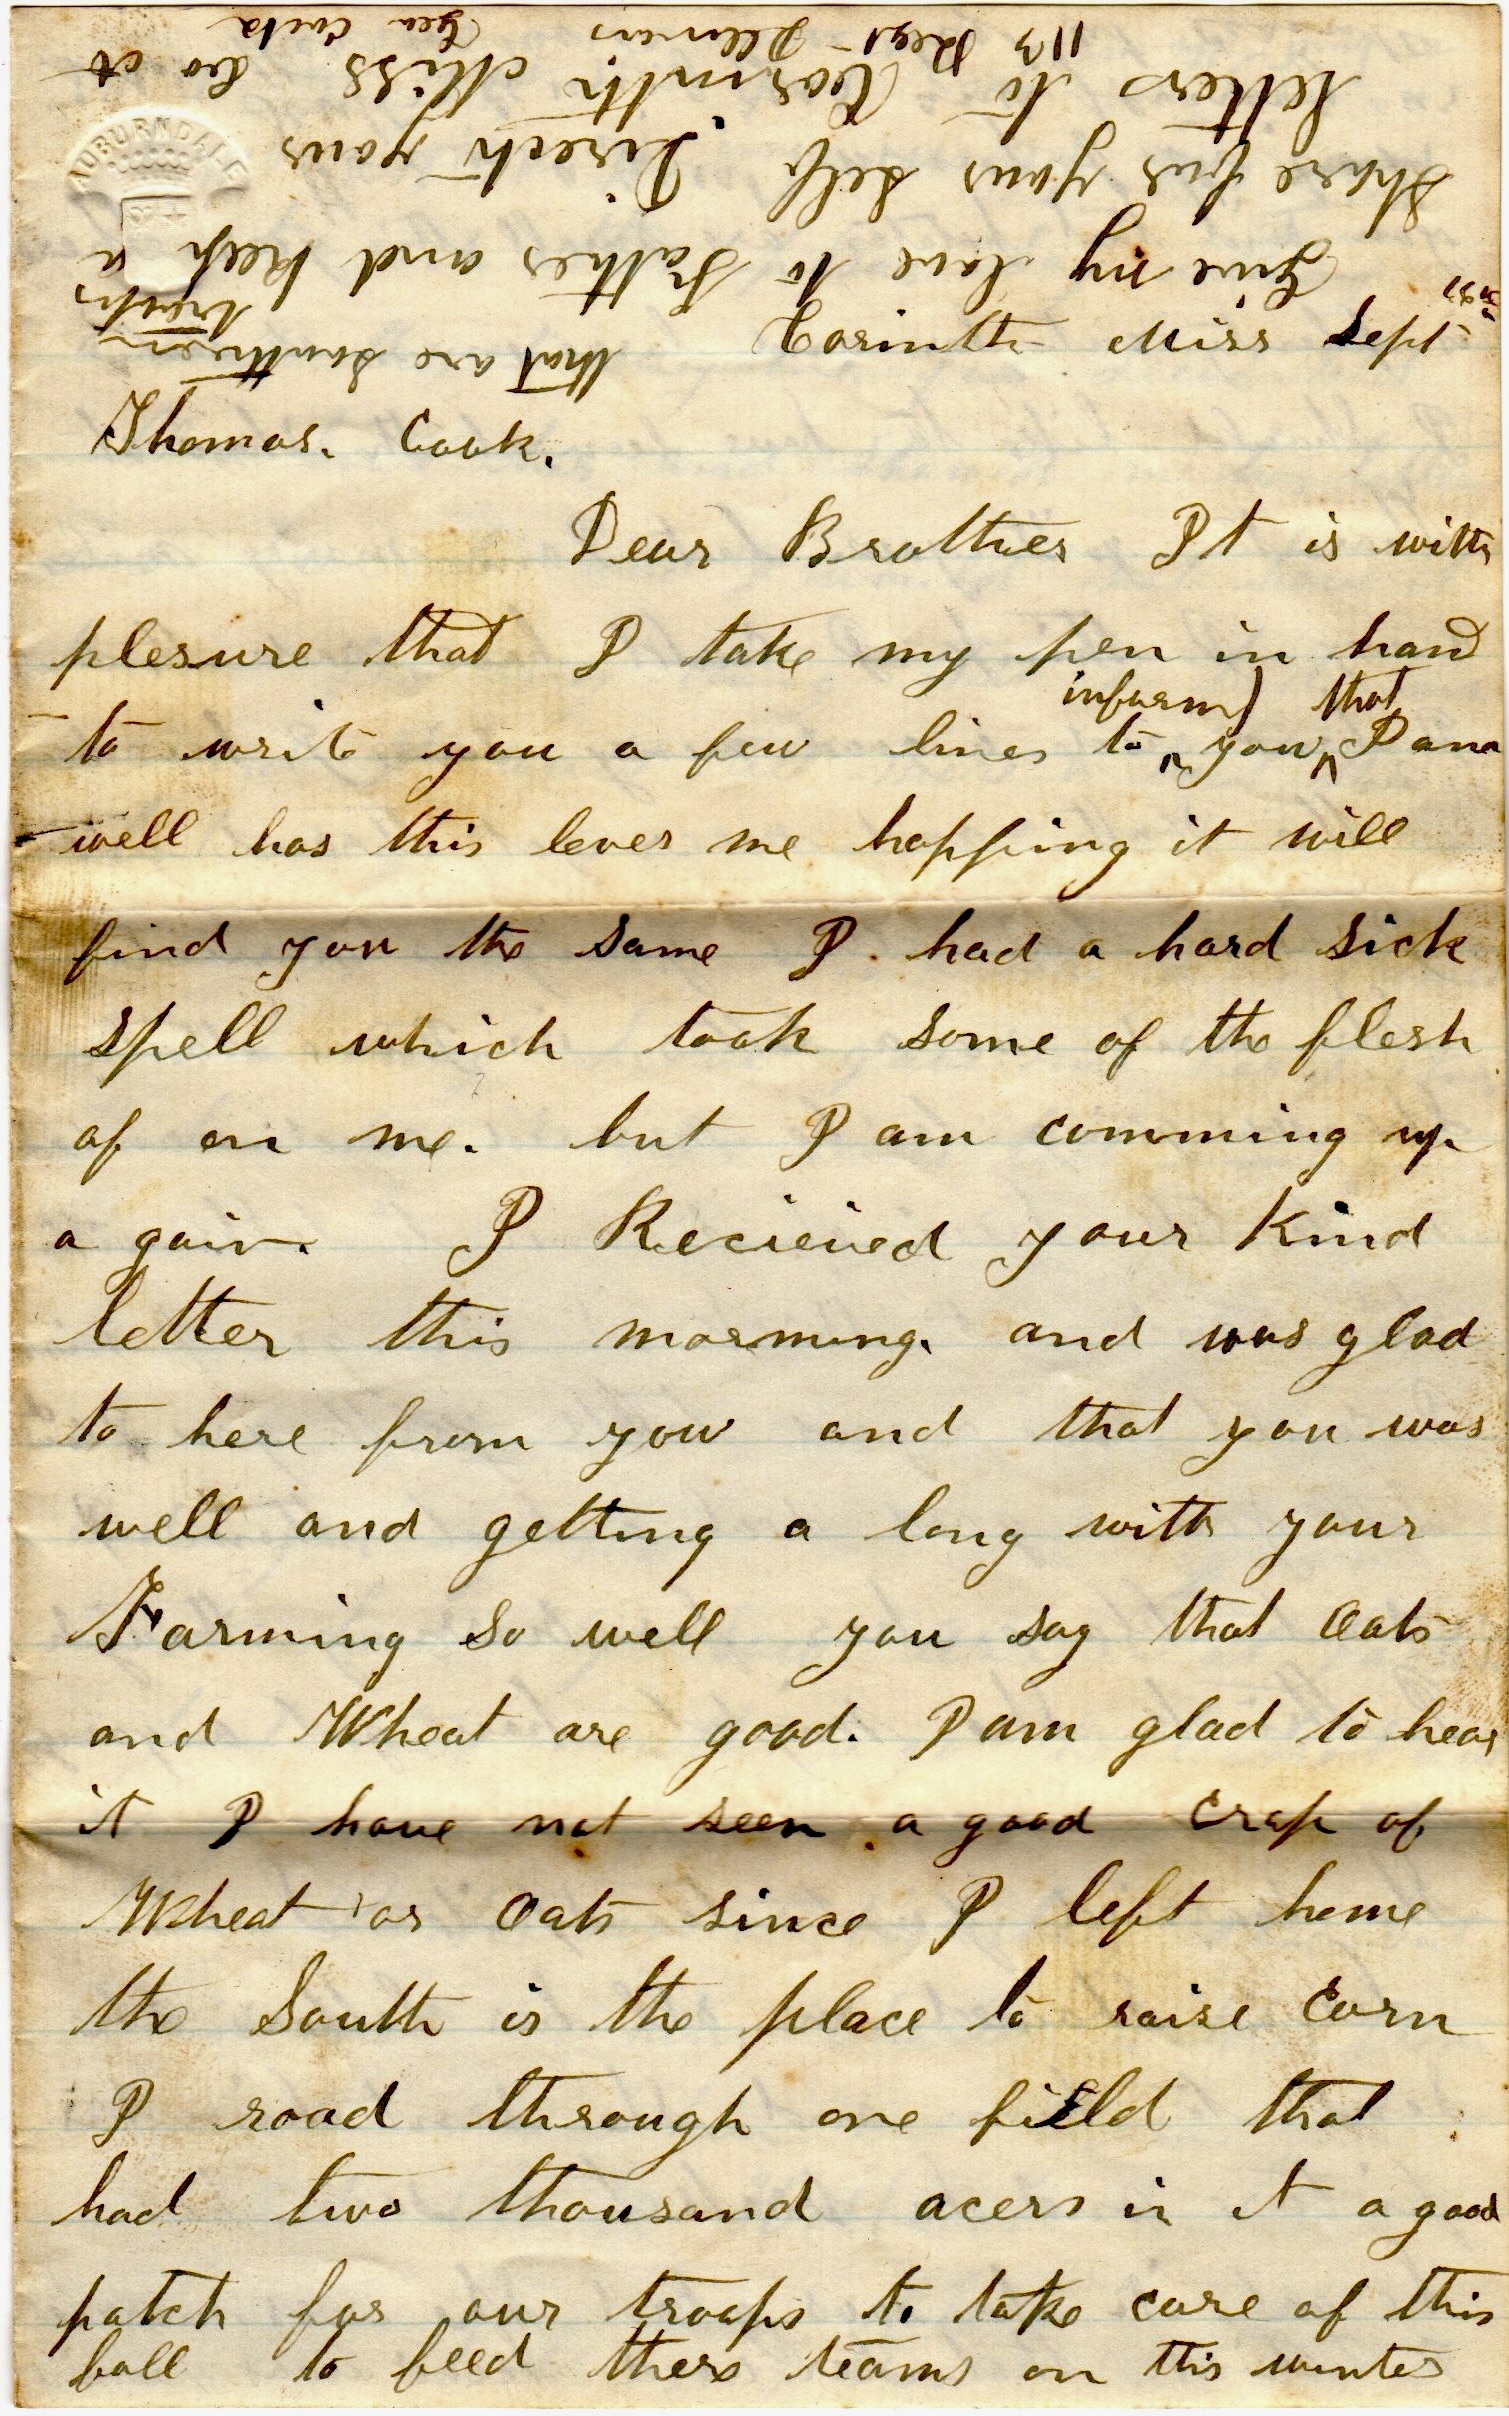 AUBURNDALE
Corinth Miss Sept
Thomas. Cook.
Dear Brother It is with
plesure that I take my pen in hand
to write you a few lines to inform you that I am
well has this leves me hopping it will
find you the same I had a hard sick
spell which took some of the flesh
of on me. but I am comming up
a gain. I Recieved your Kind
letter this morning. and was glad
to here from you and that you was
well and getting a long with your
Farming so well you say that Oats
and Wheat are good. I am glad to hear
it I have not seen a good crap of
Wheat or Oats since I left home
the South is the place to raise Corn
I road through one field that
had two thousand acers in it a good
patch for our troops to take care of this
fall to feed there teams on this winter
that are southern
Give my love to Father and keep a
Share for your self Direct your
letters to Corinth Miss Co
113 Regt